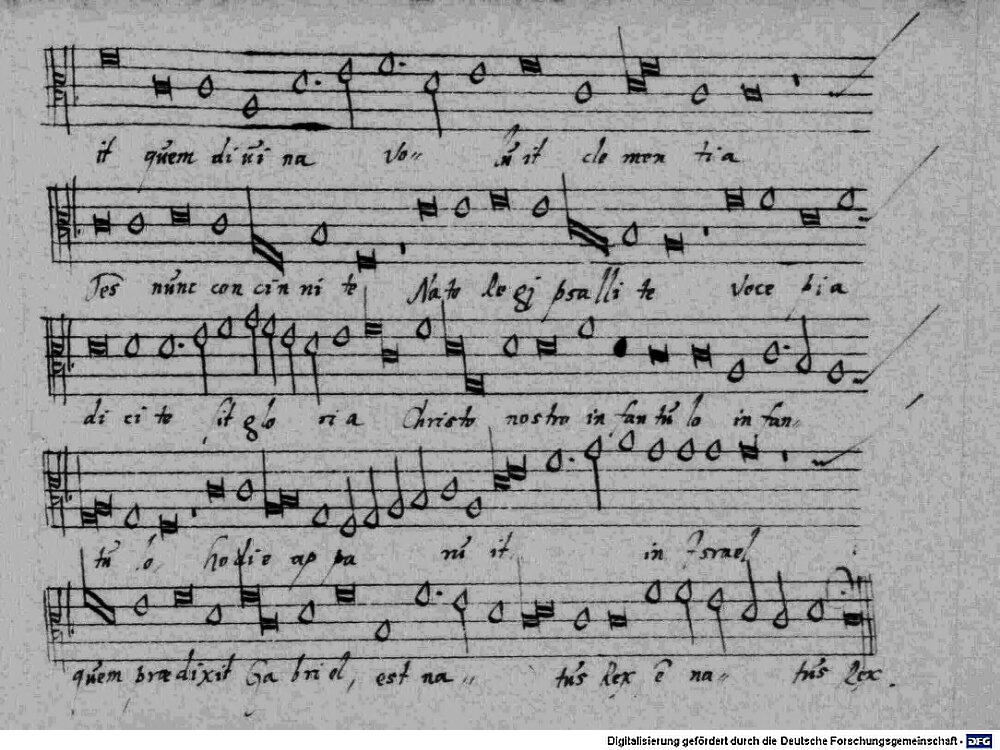 it quem diuina vo- luit clemen tia
Tes nunc concinnite Nato regi psallite voce pia
dicite sit glo ria Christo nostro infantulo infan-
tulo hodie appa ruit in Israel
quem prædixit Gabriel, est na- tus Rex ē na- tus Rex.
Digitalisierung gefördert durch die Deutsche Forschungsgemeinschaft - DFG